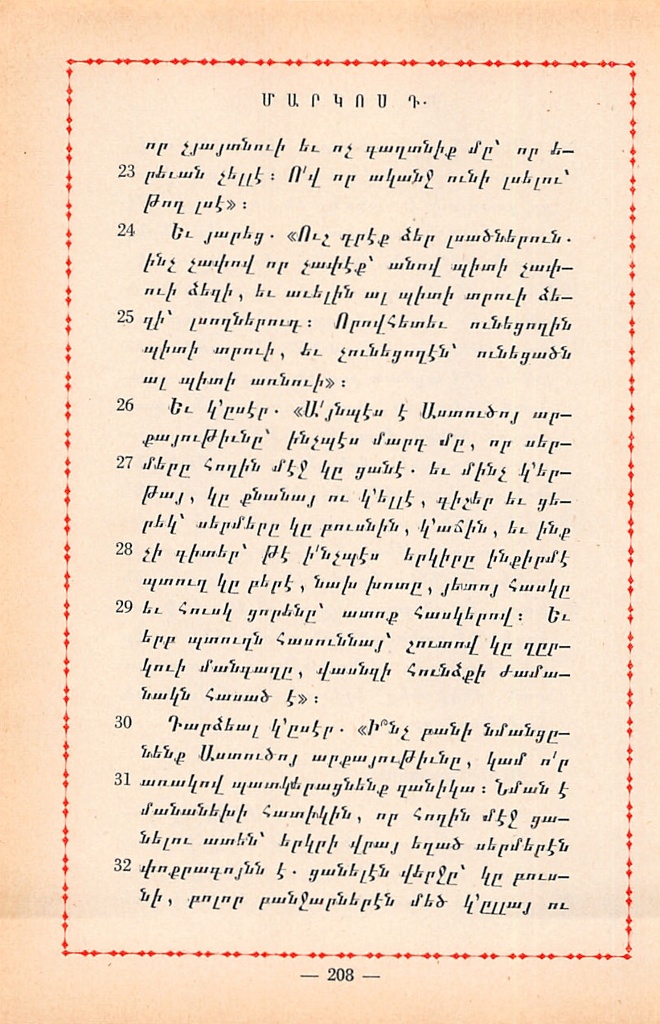 ՄԱՐԿՈՍ Դ.
որ չյայտնուի եւ ոչ գաղտնիք մը՝ որ ե—
23 րեւան չելլէ։ Ո՛վ որ ականջ ունի լսելու՝
թող լսէ»։
24 Եւ յարեց. «Ուշ դրէք ձեր լսածներուն.
ինչ չափով որ չափէք՝ անով պիտի չափ—
ուի ձեզի, եւ աւելին ալ պիտի տրուի ձե—
25 զի՝ լսողներուդ։ Որովհետեւ ունեցողին
պիտի տրուի, եւ չունեցողէն՝ ունեցածն
ալ պիտի առնուի»։
26 Եւ կ՚ըսէր. «Ա՛յնպէս է Աստուծոյ ար—
քայութիւնը՝ ինչպէս մարդ մը, որ սեր—
27 մերը հողին մէջ կը ցանէ. եւ մինչ կ՚եր—
թայ, կը քնանայ ու կ՚ելլէ, գիշեր եւ ցե—
րեկ՝ սերմերը կը բուսնին, կ՚աճին, եւ ինք
28 չի գիտեր՝ թէ ի՛նչպէս երկիրը ինքիրմէ
պտուղ կը բերէ, նախ խոտը, յետոյ հասկը
29 եւ հուսկ ցորենը՝ ատոք հասկերով։ Եւ
երբ պտուղն հասուննայ՝ շուտով կը ղըր—
կուի մանգաղը, վասնզի հունձքի ժամա—
նակն հասած է»։
30 Դարձեալ կ՚ըսէր. «Ի՞նչ բանի նմանցը—
նենք Աստուծոյ արքայութիւնը, կամ ո՛ր
31 առակով պատկերացնենք զանիկա։ Նման է
մանանեխի հատիկին, որ հողին մէջ ցա—
նելու ատեն՝ երկրի վրայ եղած սերմերէն
32 փոքրագոյնն է. ցանելէն վերջը՝ կը բուս—
նի, բոլոր բանջարներէն մեծ կ՚ըլլայ ու
— 208 —